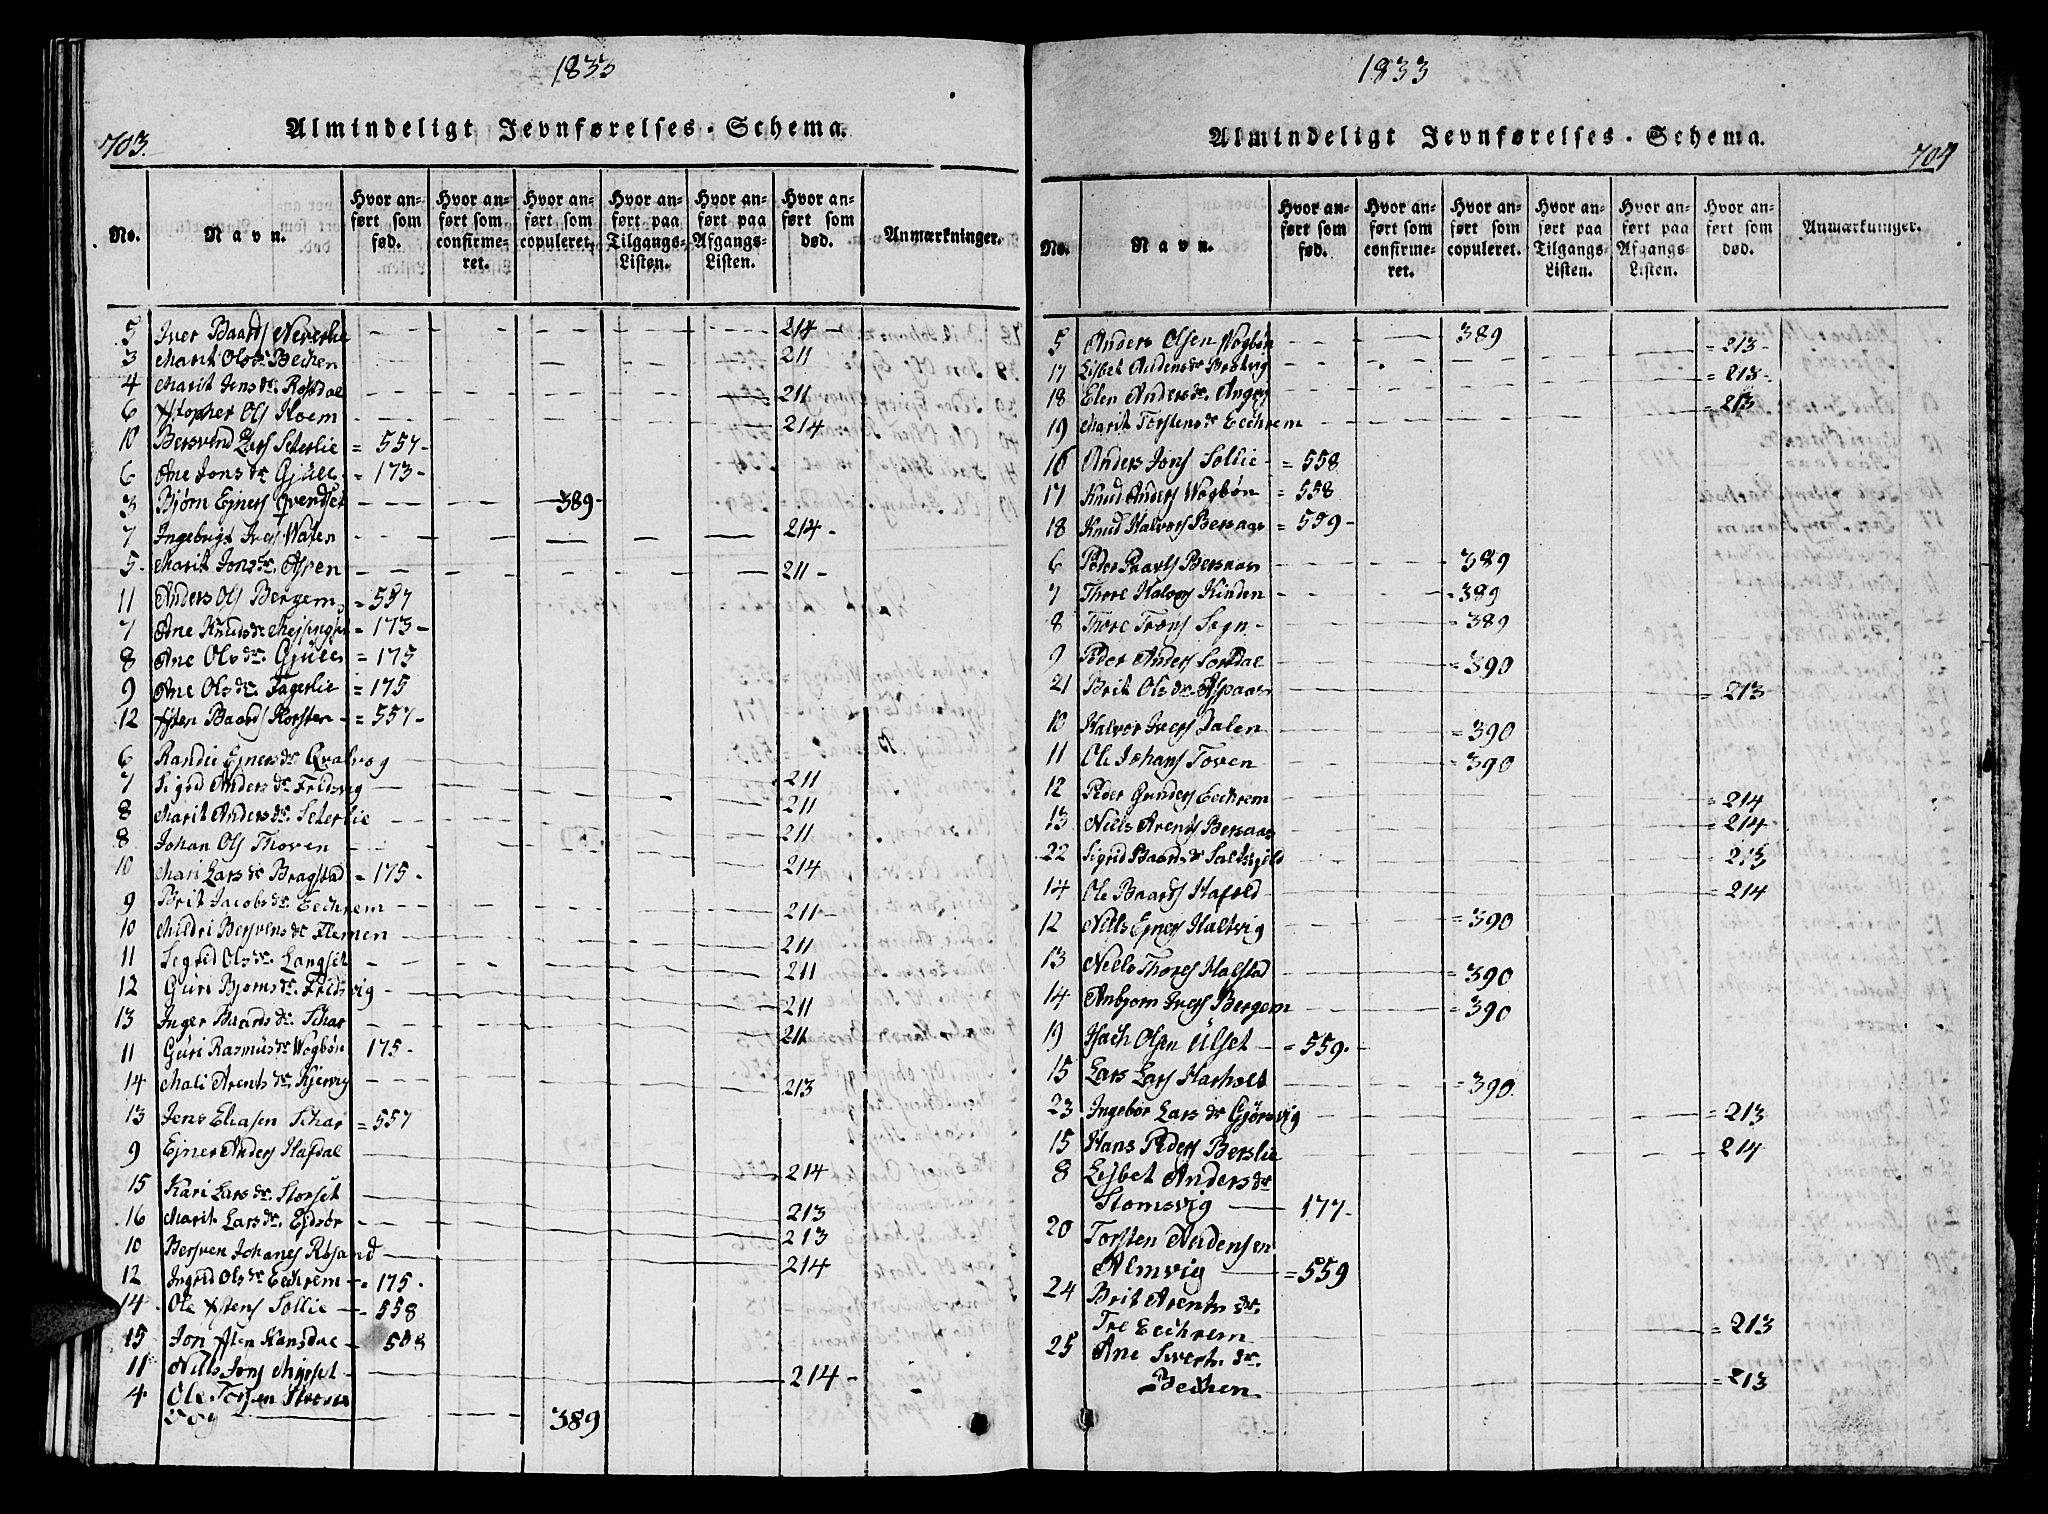 1833
703.
Almindeligt Jevnførelses-Schema.
No. Navn. Hvor anført som fød. Hvor anført som confirmeret. Hvor anført som copuleret. Hvor anført paa Tilgangs-Listen. Hvor anført paa Afgangs-Listen. Hvor anført som død. Anmærkninger.
5 Iver Baards Neverlie 214
3 Marit Ols dr. Bechen 211
4 Marit Jens dr. 211
6 Xstopher Ols Hoem 214
10 Bersvend Lars Seterlie = 557
6 Ane Jons dr 173
3 Bjørn Ejners 389
7 Ingebrigt Ivers 214
5 Marit Jons dr. 211
11 Anders Ols Bergem = 557
7 Ane Knuds dr = 173
8 Ane Ols dr. = 175
9 Ane Ols dr. Fagerlie = 175
12 Xsten Baards Horsten = 557
6 Randi Ejners dr 211
7 Sigrid Anders dr. Fredsvig 211
8 Marit Anders dr. Seterlie 211
8 Johan Ols Thoven 214
10 Mari Lars dr Bragstad = 175
9 Brit Jacobs dr. Eechrem 211
10 Mildri Bersvens dr Hemen 211
11 Sigrid Ols dr. Langset 211
12 Guri Bjorns dr. Fredsvig 211
13 Inger Baards dr. Schar 211
11 Guri Rasmus dr Wogbøn 175
14 Mali Arents dr. 213
13 Jens Eliasen Schar = 557
9 Ejner Anders Hafdal 214
15 Kari Lars dr. Storset 213
16 Marit Lars dr. Ejdsør 213
10 Bersven Johanes 214
12 Ingrid Ols dr Eechrem = 175
14 Ole Xstens Sollie = 558
15 Jon Xsten 508
11 Nils Jons 214
4 Ole 389
1833
704
Almindeligt Jevnførelses-Schema.
No. Navn. Hvor anført som fød. Hvor anført som confirmeret. Hvor anført som copuleret. Hvor anført paa Tilgangs-Listen. Hvor anført paa Afgangs-Listen. Hvor anført som død. Anmærkninger.
5 Anders Olsen Wogbøn 389
17 Lisbet Audens dr = 213
18 Elen Anders dr. = 213
19 Marit Torstens dr Eechrem = 213
16 Anders Jons Sollie = 558
17 Knud Anders Wogbøn = 558
18 Knud Halvors Bersaas = 559
6 Peder Bersaas 389
7 Thore Halvors Kinden = 389
8 Thore Trons = 389
9 Peder Anders = 390
21 Brit Ols dr. Aspaas = 213
10 Halvor Ivers Dalen = 390
11 Ole Johans Toven = 390
12 Peder Gunders Eechrem = 214
13 Niels Arents Bersaas = 214
22 Sigrid Baards dr = 213
14 Ole Baards = 214
12 Nils Ejners Haltvig = 390
13 Niels Thores Halstad = 390
14 Anbjorn Ivers Bergem = 390
19 Isach Olsen Ulset = 559
15 Lars Lars Harholt = 390
23 Ingebor Lars dr = 213
15 Hans Peders Berslie 214
8 Lisbet Anders dr
Slomsvig 177
20 Torsten Audensen
Almvig = 559
24 Brit Arents dr.
Tre Eechrem = 213
25 Ane Siverts dr.
Bechen = 213